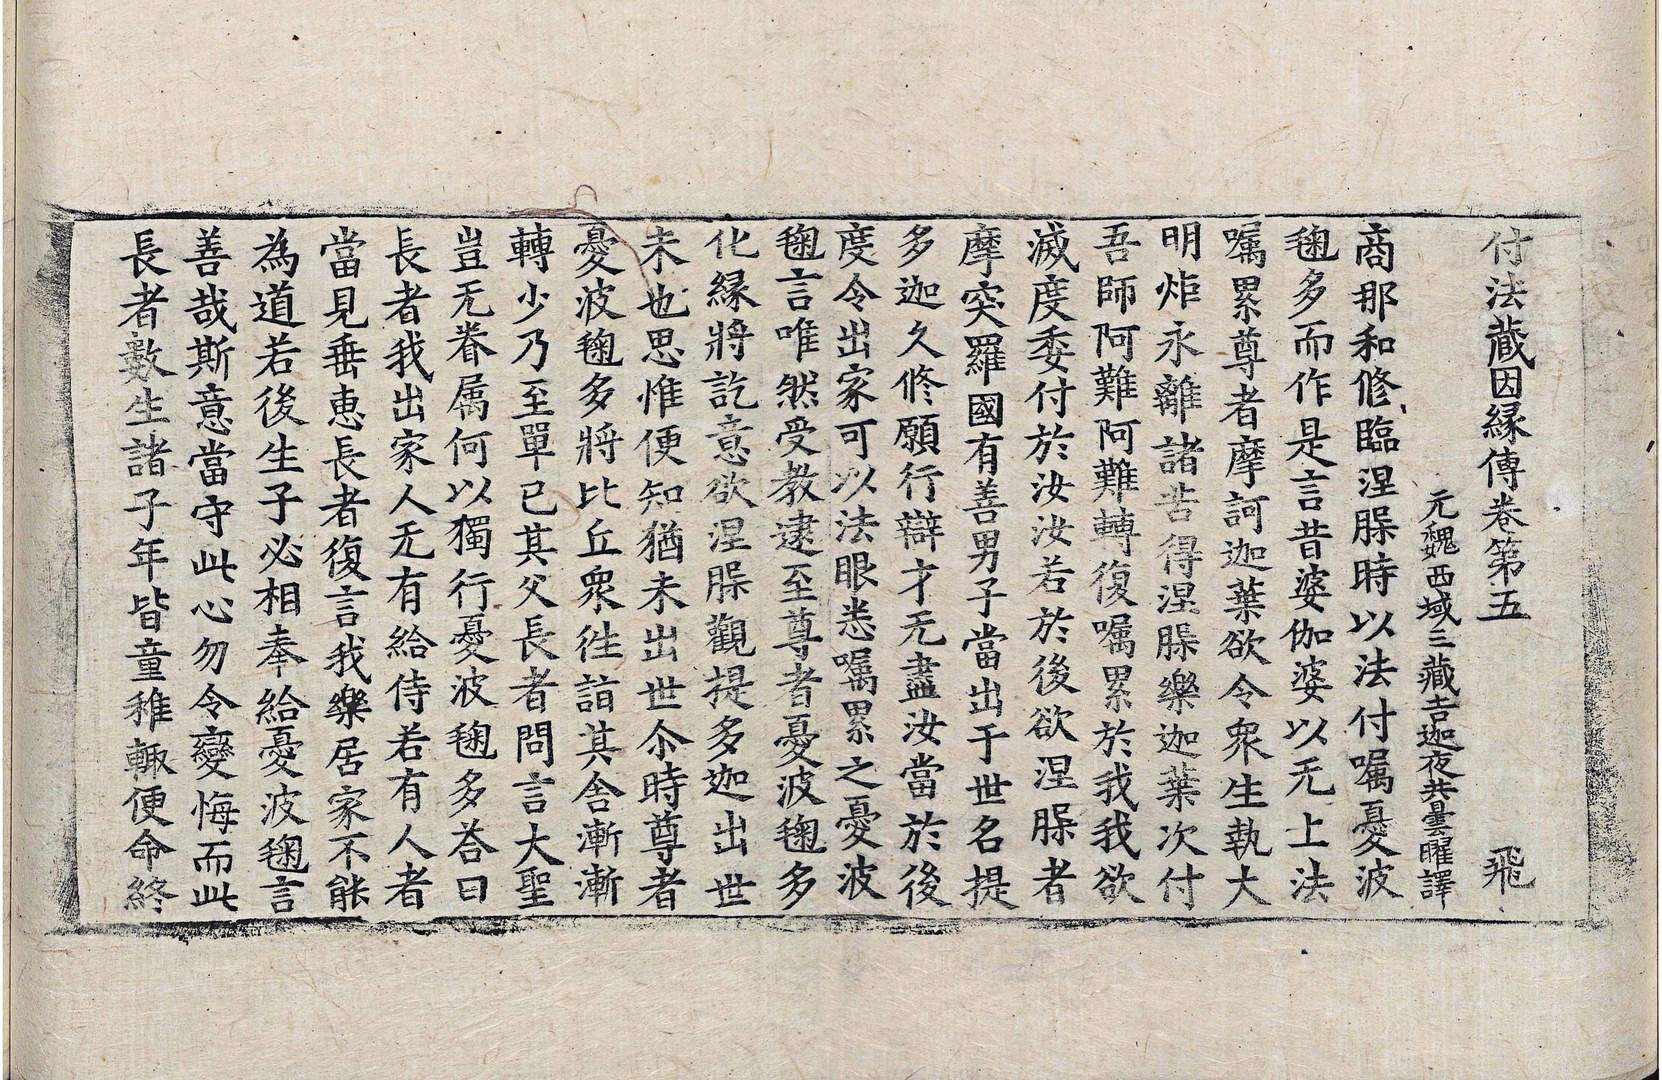 付法藏因緣傳卷第五 飛
元魏西域三藏吉迦夜共曇曜譯
商那和修臨涅槃時以法付囑憂波
毱多而作是言昔婆伽婆以无上法
囑累尊者摩訶迦葉欲令衆生執大
明炬永離諸苦得涅槃樂迦葉次付
吾師阿難阿難轉復囑累於我我欲
滅度委付於汝汝若於後欲涅槃者
摩突羅國有善男子當出于世名提
多迦久修願行辯才无盡汝當於後
度令出家可以法眼悉囑累之憂波
毱言唯然受教逮至尊者憂波毱多
化緣將訖意欲涅槃觀提多迦出世
未也思惟便知猶未出世尒時尊者
憂波毱多將比丘衆往詣其舍漸漸
轉少乃至單已其父長者問言大聖
豈无眷属何以獨行憂波毱多荅曰
長者我出家人无有給侍若有人者
當見垂恵長者復言我樂居家不能
為道若後生子必相奉給憂波毱言
善哉斯意當守此心勿令變悔而此
長者數生諸子年皆童稚輙便命終